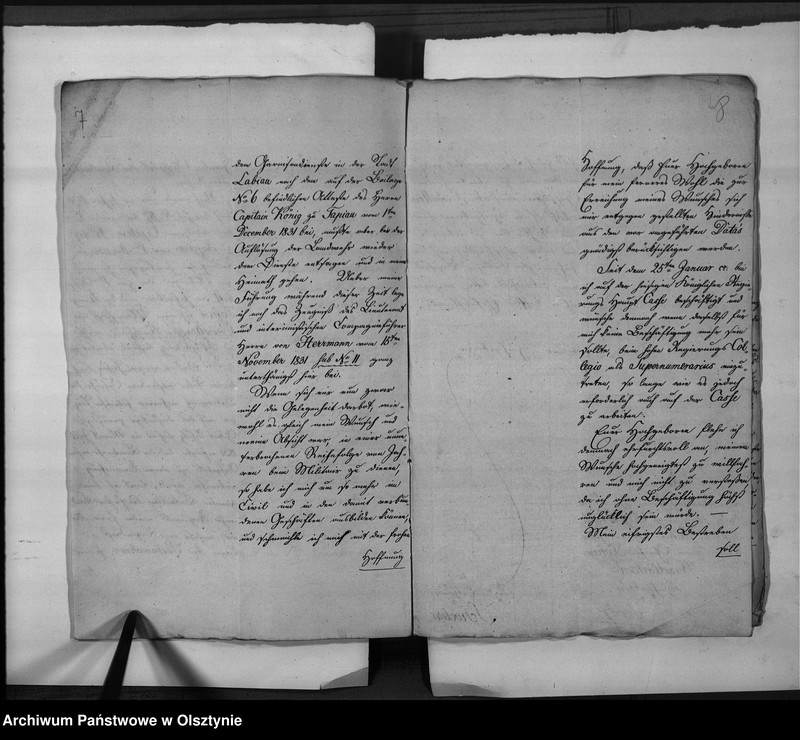 7
dem Garnisondienste in der Stadt
Labiau nach dem auf der Beilage
No 6 befindlichen Atteste des Herrn
Capitain König zu Tapiau vom 1ten
December 1831 bei, mußte aber bei der
Auflösung der Landwehr wieder
dem Dienste entsagen und in meine
Heimath gehen. Ueber meine
Führung während dieser Zeit lege
ich noch das Zeugniß des Lieutenant
und interimistischen Compagnieführer
Herrn von Herrmann vom 15ten
November 1831 sub No 11 ganz
unterthänigst hier bei.
Wenn sich mir nun zwar
nicht die Gelegenheit darbot, wie-
wohl es gleich mein Wunsch und
meine Absicht war, in einer unun-
terbrochenen Reihefolge von Jah-
ren beim Militair zu dienen,
so habe ich mich um so mehr im
Civil und in den damit verbun-
denen Geschäften ausbilden können,
und schmeichle ich mich mit der frohen
Hoffnung
8
Hoffnung, daß Euer Hochgeboren
für mein ferneres Wohl die zur
Erreichung meines Wunsches sich
mir entgegen gestellten Hindernisse
aus den vor angeführten Datis
gnädigst berücksichtigen werden.
Seit dem 25ten Januar cr. bin
ich auf der hiesigen Königlichen Regie-
rungs Haupt Casse beschäftigt und
wünsche dennoch wenn daselbst für
mich keine Beschäftigung mehr sein
sollte, beim hohen Regierungs Col-
legio als Supernumerarius einzu-
treten, so lange wie es jedoch
erforderlich auch auf der Casse
zu arbeiten.
Euer Hochgeboren flehe ich
demnach ehrfurchtsvoll an, meinem
Wunsche hochgeneigtest zu willfah-
ren und mich nicht zu verstoßen
da ich ohne Beschäftigung höchst
unglücklich sein würde. —
Mein eifrigstes Bestreben
soll
Archiwum Państwowe w Olsztynie